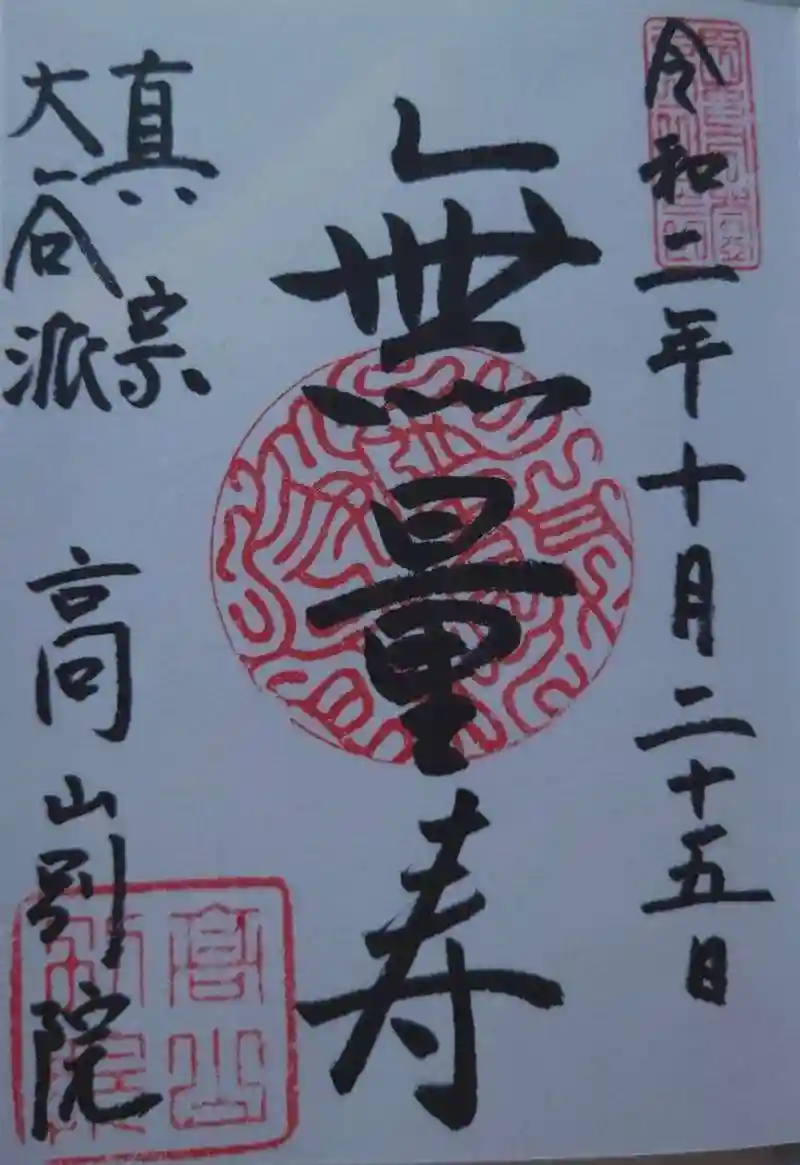 令和二年十月二十五日
無量寿
真宗
大谷派
高山別院
高山
別院